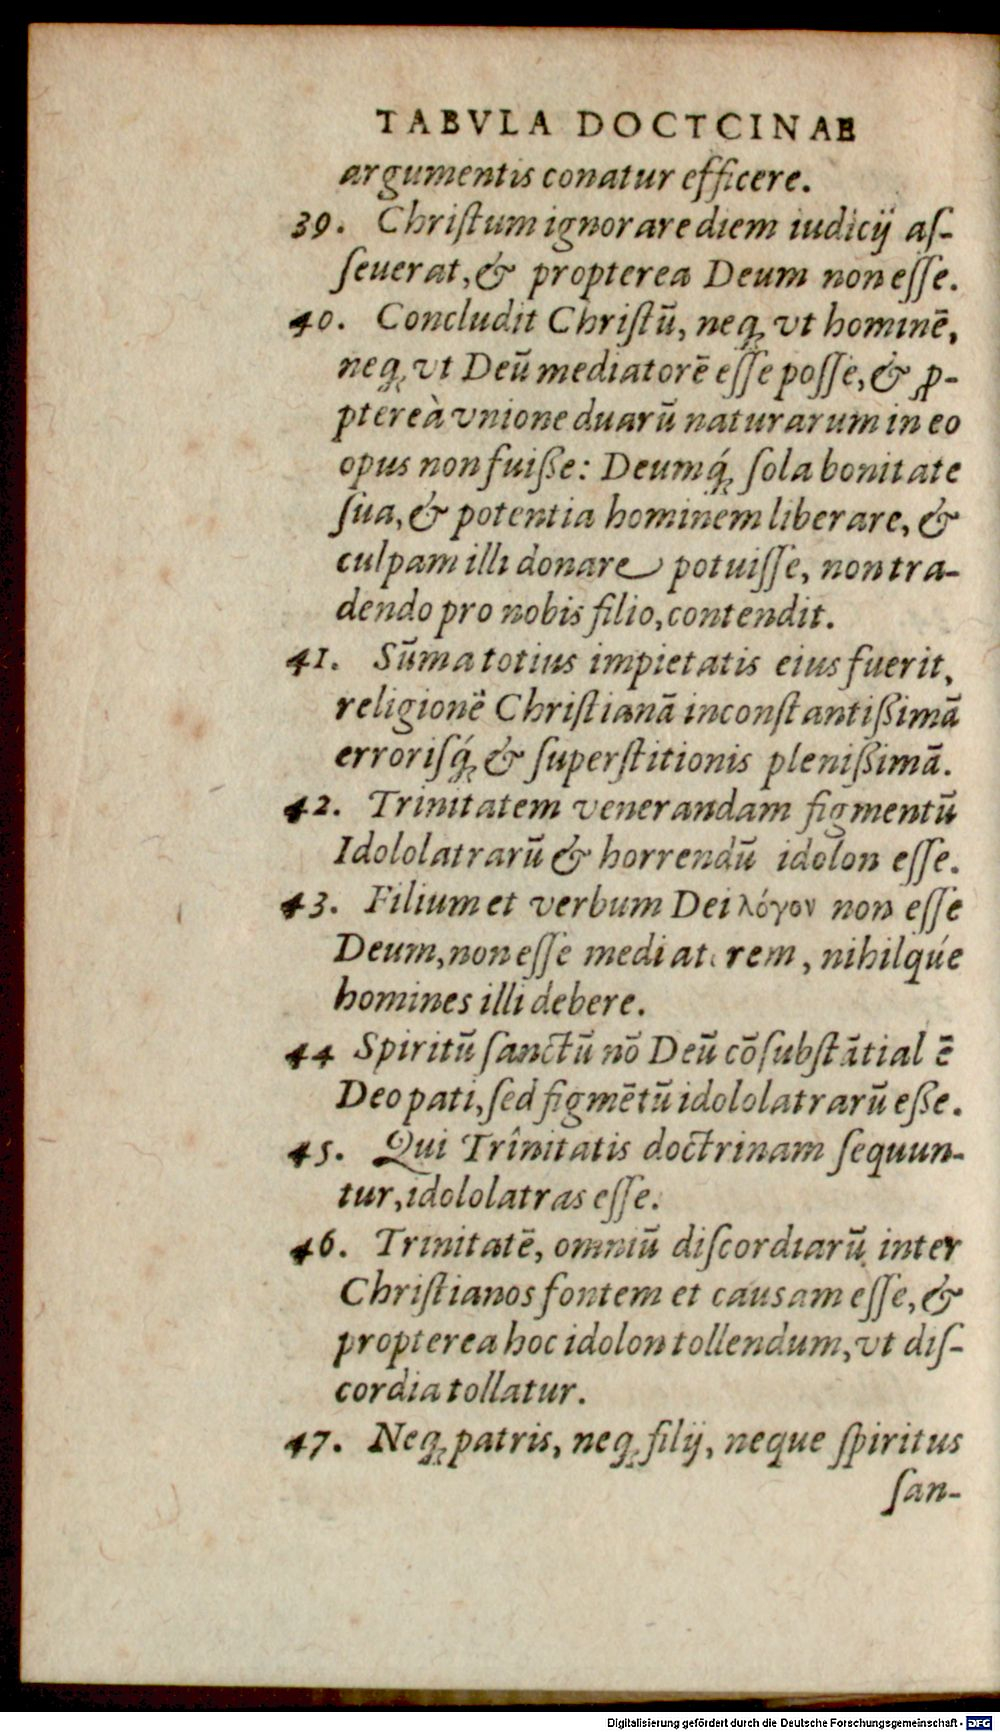 TABVLA DOCTCINAE
argumentis conatur efficere.
39. Chriſtum ignorare diem iudicij aſ-
ſeuerat, & propterea Deum non eſſe.
40. Concludit Chriſtũ, neq; vt hominē,
neq; vt Deũ mediatorē eſſe poſſe, & ꝓ-
ptereà vnione duarũ naturarum in eo
opus non fuiße: Deumq́; ſola bonitate
ſua, & potentia hominem liberare, &
culpam illi donare potuiſſe, non tra-
dendo pro nobis filio, contendit.
41. Sũma totius impietatis eius fuerit,
religionē Chriſtianã inconſtantißimã
erroriſq́; & ſuperſtitionis plenißimã.
42. Trinitatem venerandam figmentũ
Idololatrarũ & horrendũ idolon eſſe.
43. Filium et verbum Dei λόγον non eſſe
Deum, non eſſe mediat rem, nihilqúe
homines illi debere.
44 Spiritũ ſanctũ nõ Deũ cõſubſtãtial ē
Deo pati, ſed figmētũ idololatrarũ eße.
45. Qui Trînitatis doctrinam ſequun-
tur, idololatras eſſe.
46. Trinitatē, omniũ diſcordiarũ inter
Chriſtianos fontem et causam eſſe, &
propterea hoc idolon tollendum, vt diſ-
cordia tollatur.
47. Neq; patris, neq; filij, neque ſpiritus
ſan-
Digitalisierung gefördert durch die Deutsche Forschungsgemeinschaft - DFG